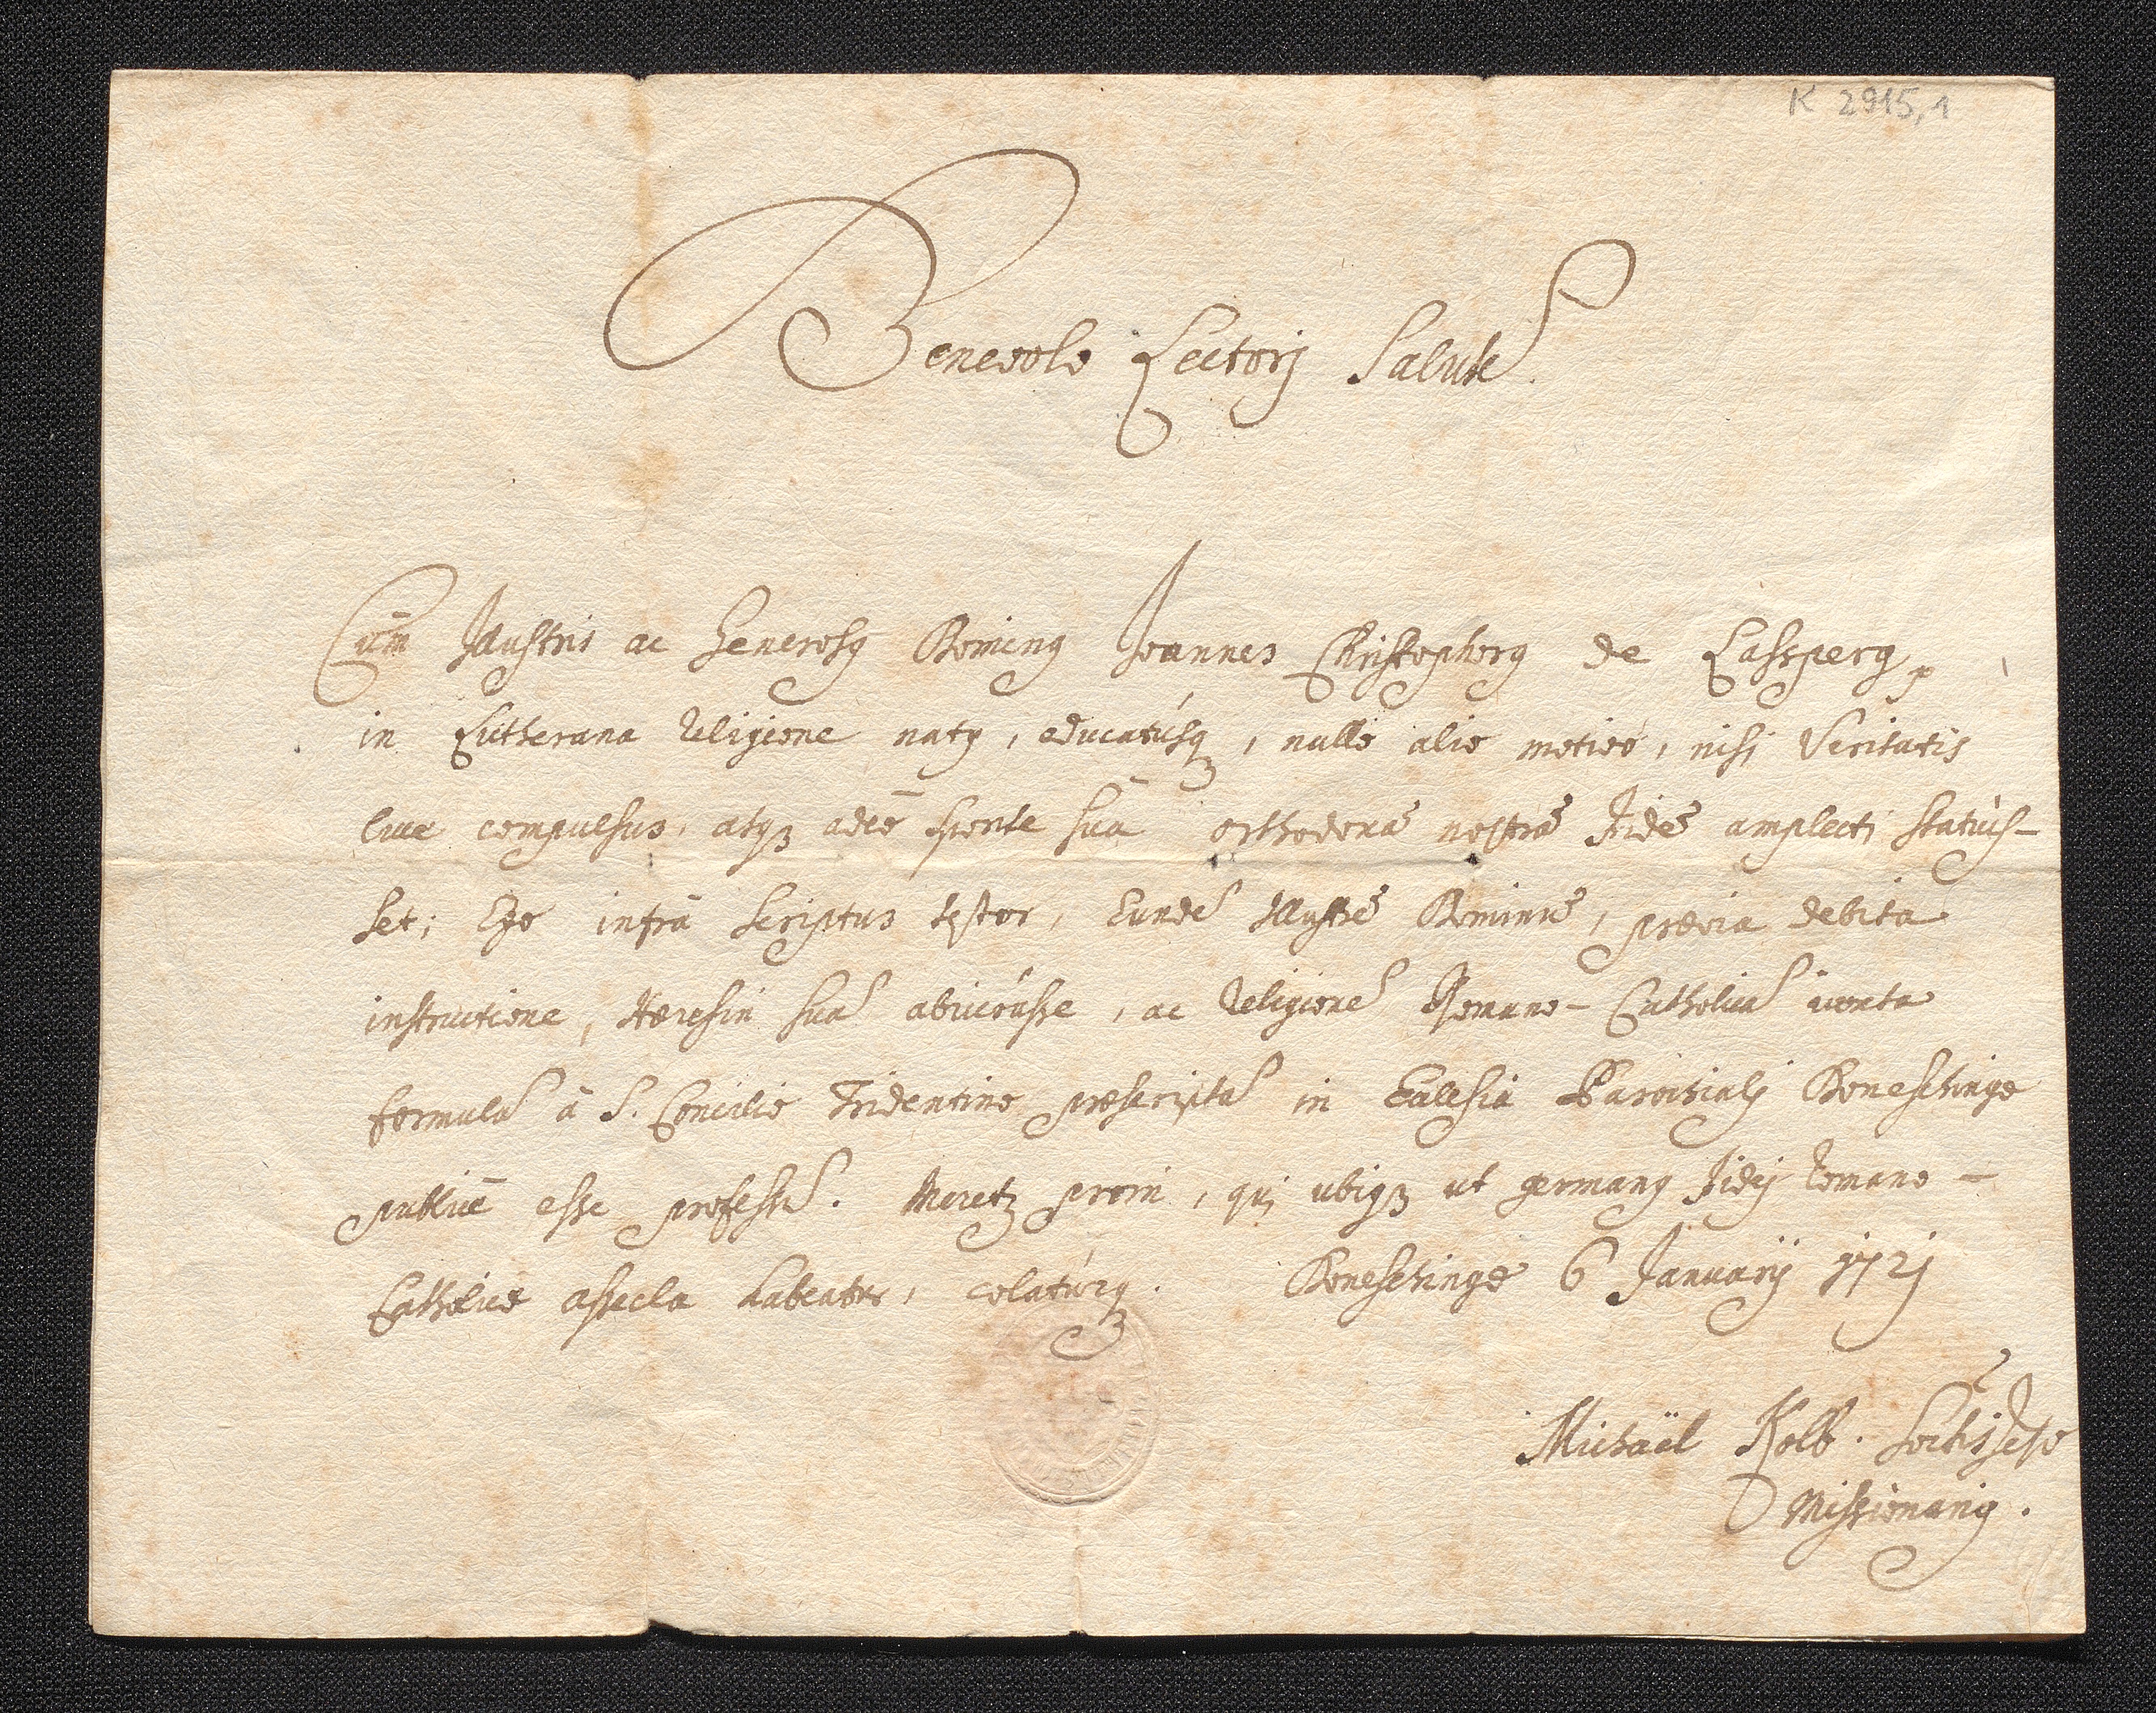 K 2915,1
Benevolo Lectorj Salutẽ
Cùm Illustris ac Generosꝰ Dominꝰ Joannes Christophorꝰ de Lassperg,
in Lutherana religione natꝰ, educatúsqꝫ, nullo alio motivo, nisj Veritatis
luce compulsus, atqꝫ adeò sponte suâ orthodoxã nostrã Fidẽ amplecti statuis-
set; Ego infrà scriptus testor, Eundẽ Illustrẽ Dominũ, prævia debita
instructione, Hæresin suã abiurâsse, ac religionẽ Romano-Catholicã iuxta
formulã â S. Concilio Tridentino præscriptã in Ecclesia Parochialj Doneschingæ
publicè esse professũ. Meretꝫ proin, qúj ubiqꝫ ut germanꝰ Fidej Romano-
Catholicæ assecla habeatur, colatúrqꝫ. Doneschingæ 6 Januarij 1721
Michaël Kolb. Soctis Jesu
Missionariꝰ.